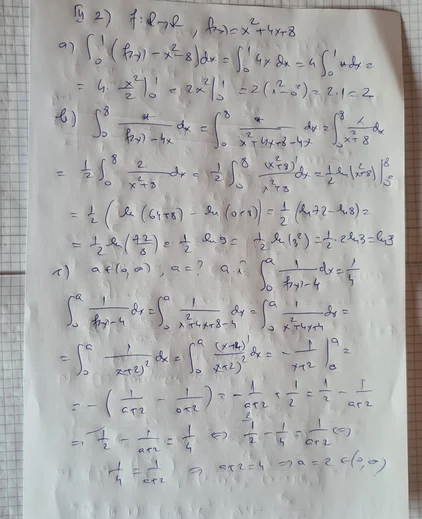 III 2) f: R→R, f(x) = x²+4x+8
a) ∫₀¹ (f(x) - x² - 8) dx = ∫₀¹ 4x dx = 4 ∫₀¹ x dx =
= 4 · x²/2 |₀¹ = 2x² |₀¹ = 2(1² - 0²) = 2·1 = 2
b) ∫₀⁸ x/(f(x)-4x) dx = ∫₀⁸ x/(x²+4x+8-4x) dx = ∫₀⁸ x/(x²+8) dx
= 1/2 ∫₀⁸ 2/(x²+8) dx = 1/2 ∫₀⁸ (x²+8)'/(x²+8) dx = 1/2 ln(x²+8) |₀⁸
= 1/2 (ln(64+8) - ln(0+8)) = 1/2 (ln72 - ln8) =
= 1/2 ln(72/8) = 1/2 ln 9 = 1/2 ln(3²) = 1/2 · 2 ln3 = ln3
c) a∈(0,∞), a=? a.î. ∫₀ᵃ 1/(f(x)-4) dx = 1/4
∫₀ᵃ 1/(f(x)-4) dx = ∫₀ᵃ 1/(x²+4x+8-4) dx = ∫₀ᵃ 1/(x²+4x+4) dx =
= ∫₀ᵃ 1/(x+2)² dx = ∫₀ᵃ (x+2)'/(x+2)² dx = - 1/(x+2) |₀ᵃ =
= -(1/(a+2) - 1/(0+2)) = - 1/(a+2) + 1/2 = 1/2 - 1/(a+2)
⇒ 1/2 - 1/(a+2) = 1/4 ⇔ 1/2 - 1/4 = 1/(a+2) ⇔
1/4 = 1/(a+2) ⇒ a+2 = 4 ⇒ a = 2 ∈ (0,∞)